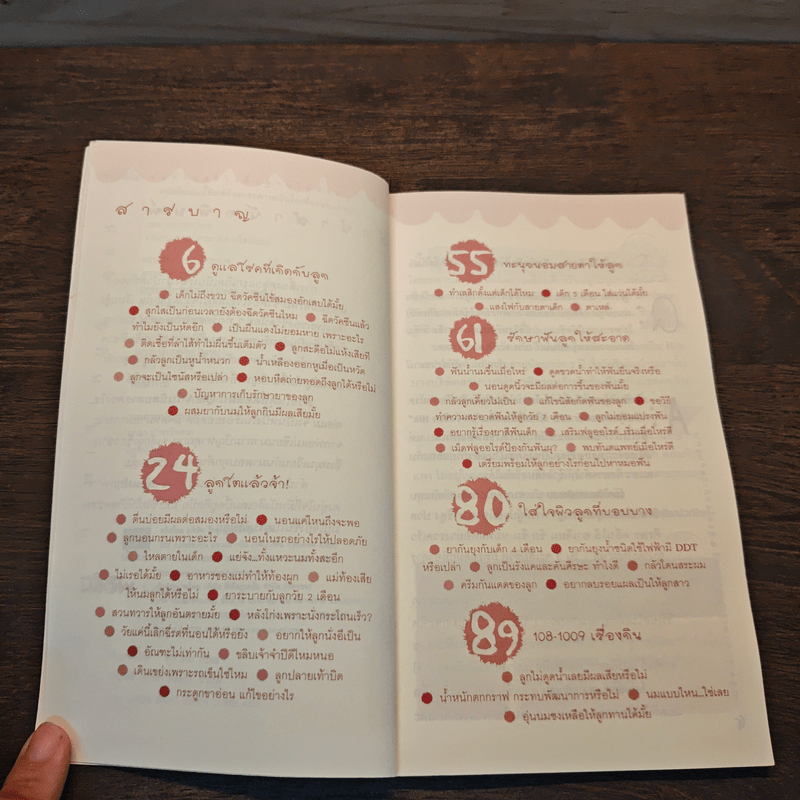 สารบาญ
6 ดูแลโรคที่เกิดกับลูก
เด็กไม่ถึงขวบ ฉีดวัคซีนไข้สมองอักเสบได้มั้ย
สุกใสเป็นก่อนเวลายังต้องฉีดวัคซีนไหม ฉีดวัคซีนแล้ว
ทำไมยังเป็นหัดอีก เป็นผื่นแดงไม่ยอมหาย เพราะอะไร
ติดเชื้อที่ลำไส้ทำไมผื่นขึ้นเต็มตัว ลูกสะดือไม่แห้งเสียที
กลัวลูกเป็นหูน้ำหนวก น้ำเหลืองออกหูเมื่อเป็นหวัด
ลูกจะเป็นไซนัสหรือเปล่า หอบหืดถ่ายทอดถึงลูกได้หรือไม่
ปัญหาการเก็บรักษายาของลูก
ผสมยากับนมให้ลูกกินมีผลเสียมั้ย
24 ลูกโตแล้วจ้า!
ตื่นบ่อยมีผลต่อสมองหรือไม่ นอนแค่ไหนถึงจะพอ
ลูกนอนกรนเพราะอะไร นอนในรถอย่างไรให้ปลอดภัย
ไหลตายในเด็ก แย่จัง...ทั้งแหวะนมทั้งสะอึก
ไม่เรอได้มั้ย อาหารของแม่ทำให้ท้องผูก แม่ท้องเสีย
ให้นมลูกได้หรือไม่ ยาระบายกับลูกวัย 2 เดือน
สวนทวารให้ลูกอันตรายมั้ย หลังโก่งเพราะนั่งกระโถนเร็ว?
วัยแค่นี้เลิกฉี่รดที่นอนได้หรือยัง อยากให้ลูกนั่งอึเป็น
อัณฑะไม่เท่ากัน ขลิบเจ้าจำปีดีไหมหนอ
เดินเขย่งเพราะรถเข็นใช่ไหม ลูกปลายเท้าบิด
กระดูกขาอ่อน แก้ไขอย่างไร
55 ทะนุถนอมสายตาให้ลูก
ทำเลสิกตั้งแต่เด็กได้ไหม เด็ก 5 เดือน ใส่แว่นได้มั้ย
แสงไฟกับสายตาเด็ก ตาเหล่
61 รักษาฟันลูกให้สะอาด
ฟันน้ำนมขึ้นเมื่อไหร่ ดูดขวดน้ำทำให้ฟันยื่นจริงหรือ
นอนดูดนิ้วจะมีผลต่อการขึ้นของฟันมั้ย
กลัวลูกเคี้ยวไม่เป็น แก้ไขนิสัยกัดฟันของลูก ขอวิธี
ทำความสะอาดฟันให้ลูกวัย 7 เดือน ลูกไม่ยอมแปรงฟัน
อยากรู้เรื่องยาสีฟันเด็ก เสริมฟลูออไรด์...เริ่มเมื่อไหร่ดี
เม็ดฟลูออไรด์ป้องกันฟันผุ? พบทันตแพทย์เมื่อไหร่ดี
เตรียมพร้อมให้ลูกอย่างไรก่อนไปหาหมอฟัน
80 ใส่ใจผิวลูกที่บอบบาง
ยากันยุงกับเด็ก 4 เดือน ยากันยุงน้ำชนิดใช้ไฟฟ้ามี DDT
หรือเปล่า ลูกเป็นรังแคและคันศีรษะ ทำไงดี กลัวโดนสระผม
ครีมกันแดดของลูก อยากลบรอยแผลเป็นให้ลูกสาว
89 108-1009 เรื่องกิน
ลูกไม่ดูดน้ำเลยมีผลเสียหรือไม่
น้ำหนักตกกราฟ กระทบพัฒนาการหรือไม่ นมแบบไหน...ใช่เลย
อุ่นนมชงเหลือให้ลูกทานได้มั้ย